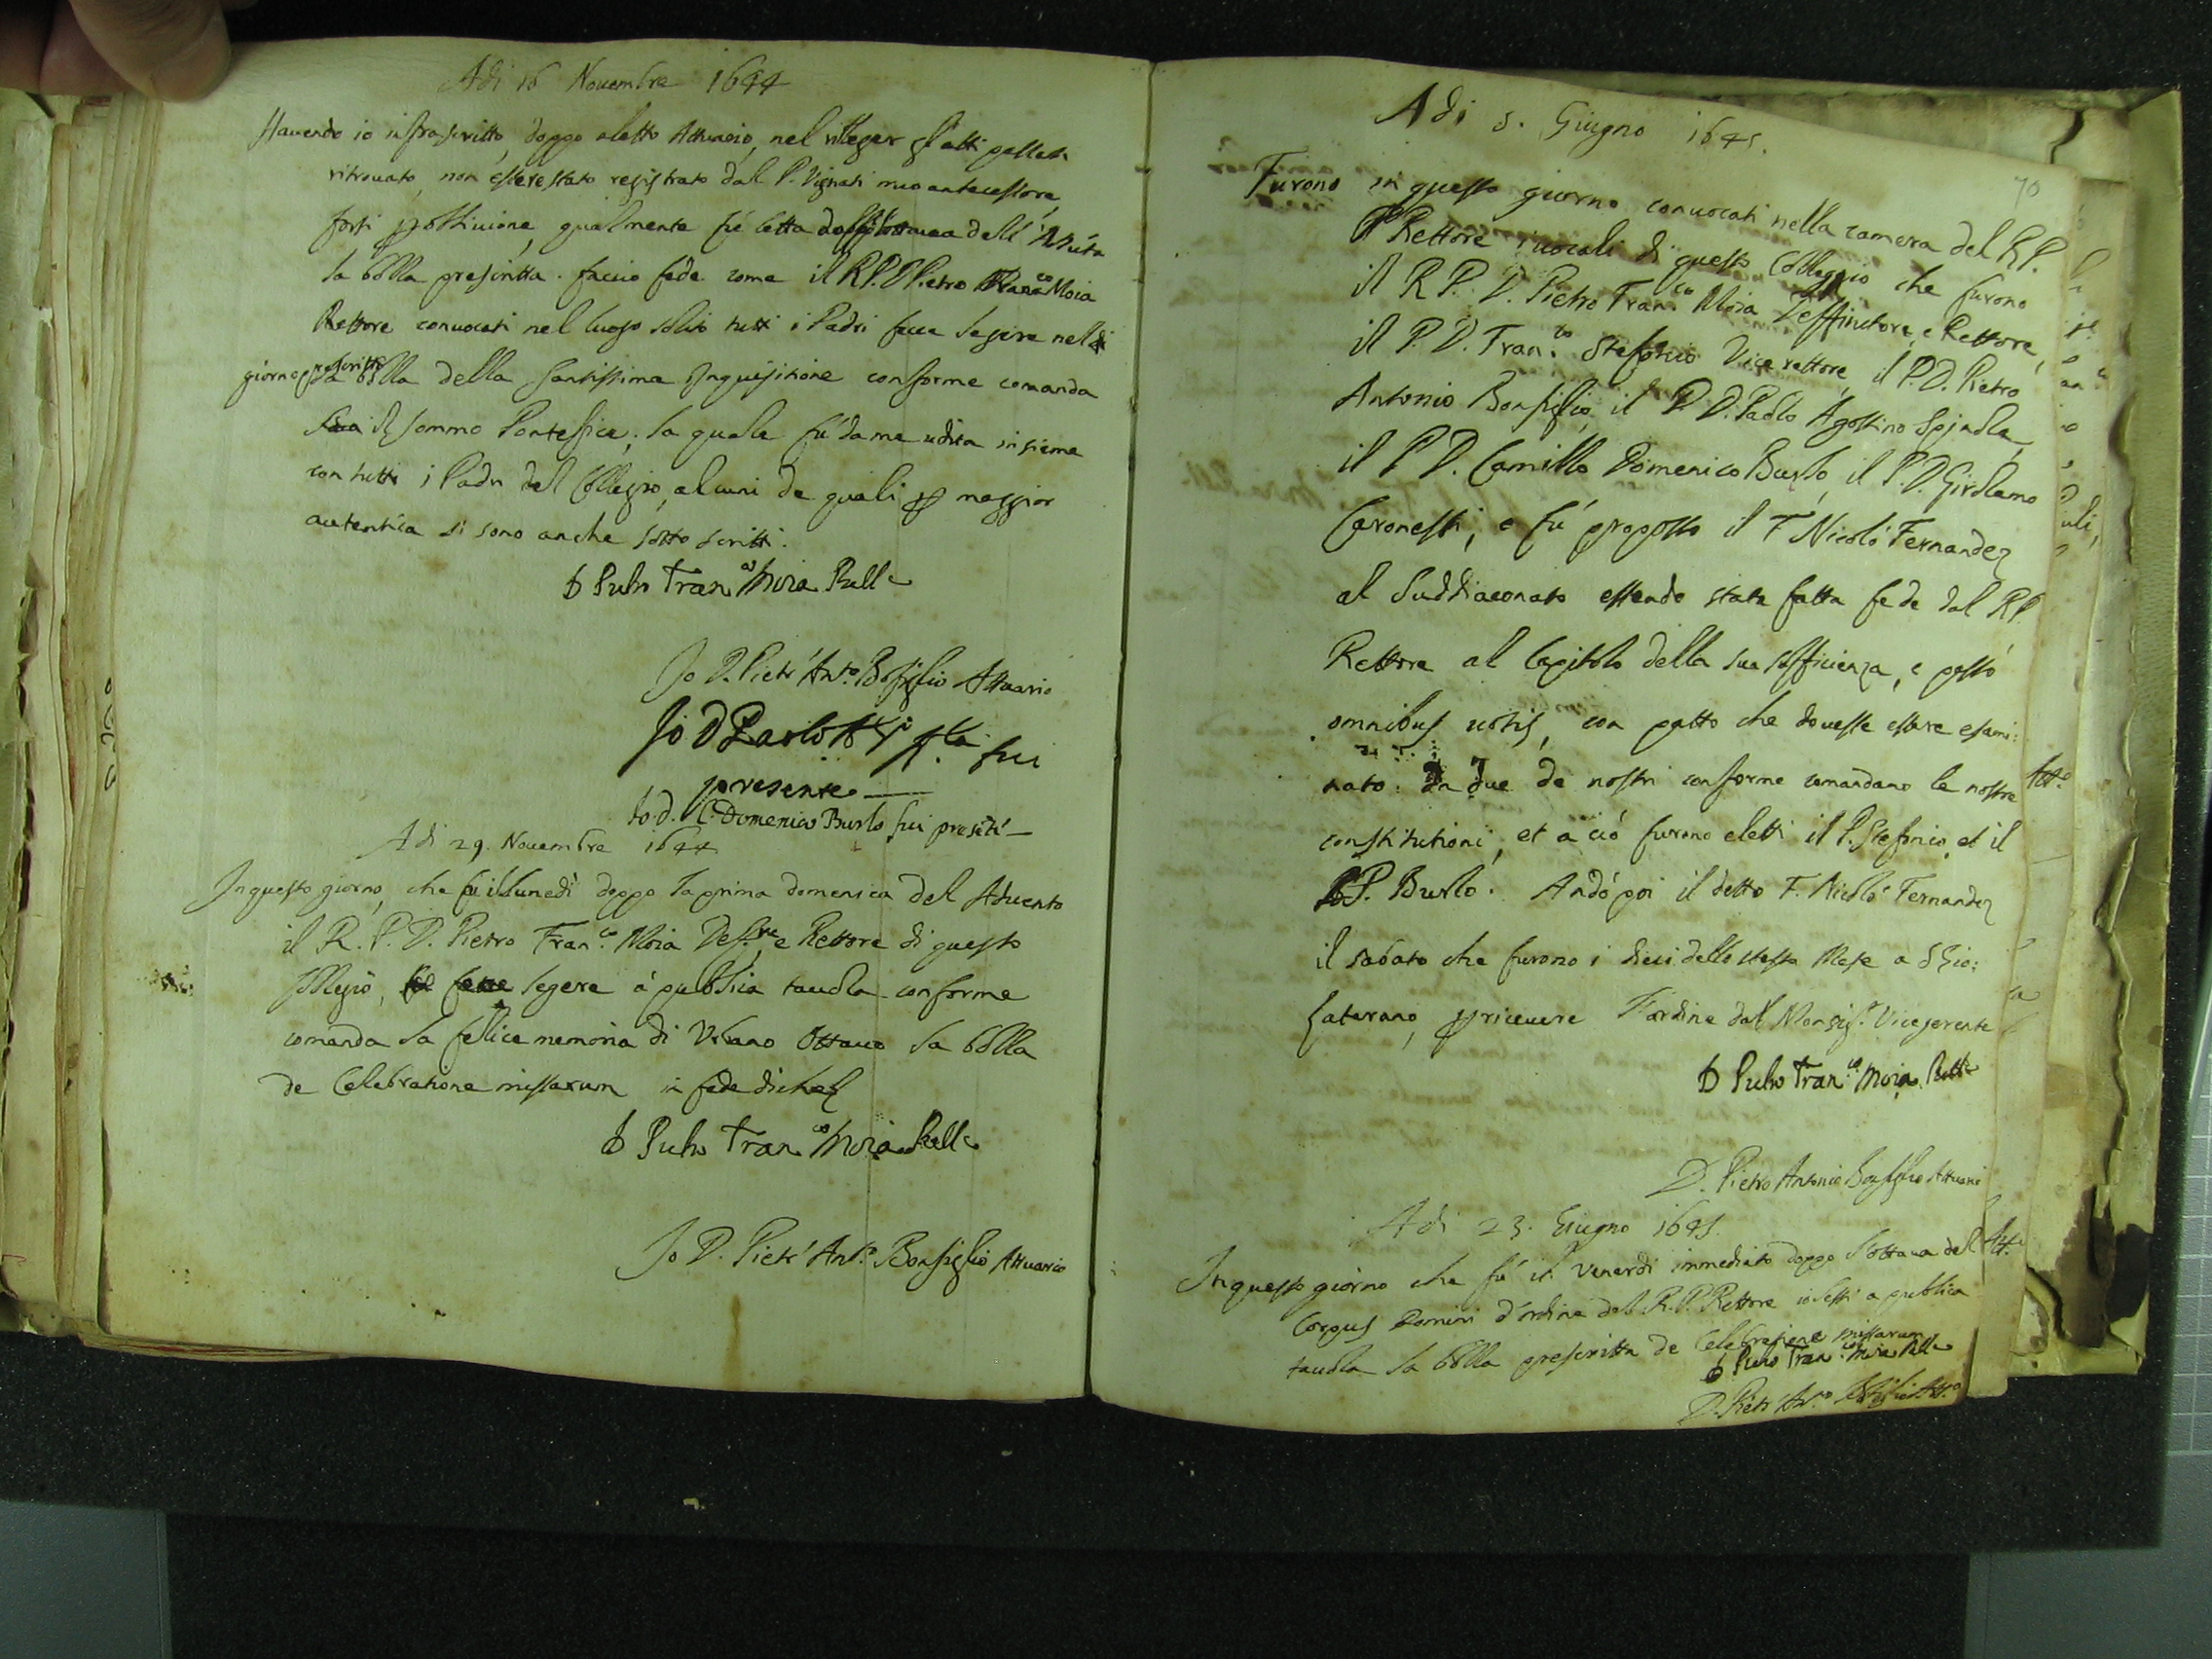 Adi 16 Novembre 1644
Havendo io infrascritto, doppo eletto Attuario, nel rileger gl'atti passati
ritrovato, non essere stato registrato dal P. Vignati mio antecessore,
forsi qualmente fù letta dell'
la bolla prescritta. faccio fede come il R.P.D. Pietro Franco Moia
Rettore convocati nel luogo solito tutti i Padri fece legere nel
giorno prescritto la bolla della santissima Inquisitione conforme comanda
il sommo Pontefice; la quale fù da me udita insieme
con tutti i Padri del Collegio, alcuni de quali p maggior
autentica si sono anche sotto scritti.
D Pietro Franco Moia Rettre
Io D. Pietr'Anto Bonfiglio Attuario
Io D Paolo fui
presente
Io d. C. Domenico Burlo fui presete
Adi 29. Novembre 1644
In questo giorno, che fù il Lunedì doppo la prima domenica del Advento
il R. P. D. Pietro Franco Moia Defre e Rettore di questo
Collegio, fece legere à publica tavola conforme
comanda la fellice memoria di Urbano Ottavo la bolla
de Celebratione missarum in fede di che
D Pietro Franco Moia Rettre
Io D. Pietr'Anto Bonfiglio Attuario
70
Adi 5. Giugno 1645.
Furono in questo giorno convocati nella camera del R.P.
Rettore i vocali di questo Colleggio che furono
il R P. D. Pietro Franco Moia Deffinitore, e Rettore,
il P. D. Franco Stefonio Vice rettore, il P. D. Pietro
Antonio Bonfiglio, il P. D. Paolo Agostino Spinola,
il P D. Camillo Domenico Burlo, il P. D. Girolamo
Caronesti; e fù proposto il F Nicolò Fernandez
al Suddiaconato essendo stata fatta fede dal R P
Rettore al Capitolo della sua sofficienza, e passò
omnibus votis, con patto che dovesse essere esami:
nato. Da due de nostri conforme comandano le nostre
constitutioni, et a ciò furono eletti il P. Stefonio, et il
P. Burlo. Andò poi il detto F. Nicolò Fernandez
il sabato che furono i dieci dello stesso Mese a S Gio:
Laterano, p ricevere l'ordine dal Monsigr Vicegerente
D Pietro Franco Moia Rettre
D. Pietro Antonio Bonfiglio Attuario
Adi 23. Giugno 1645.
In questo giorno che fù il Venerdì immediato doppo l'ottava del
Corpus Domini d'ordine del R. P. Rettore io lessi a publica
tavola la bolla prescritta de Celebratione missarum
D Pietro Franco Moia Rettre
D. Pietr'Anto Bonfiglio Atto